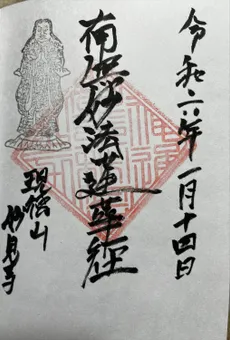 令和六年一月十四日
南無妙法蓮華経
現徳山
妙見寺